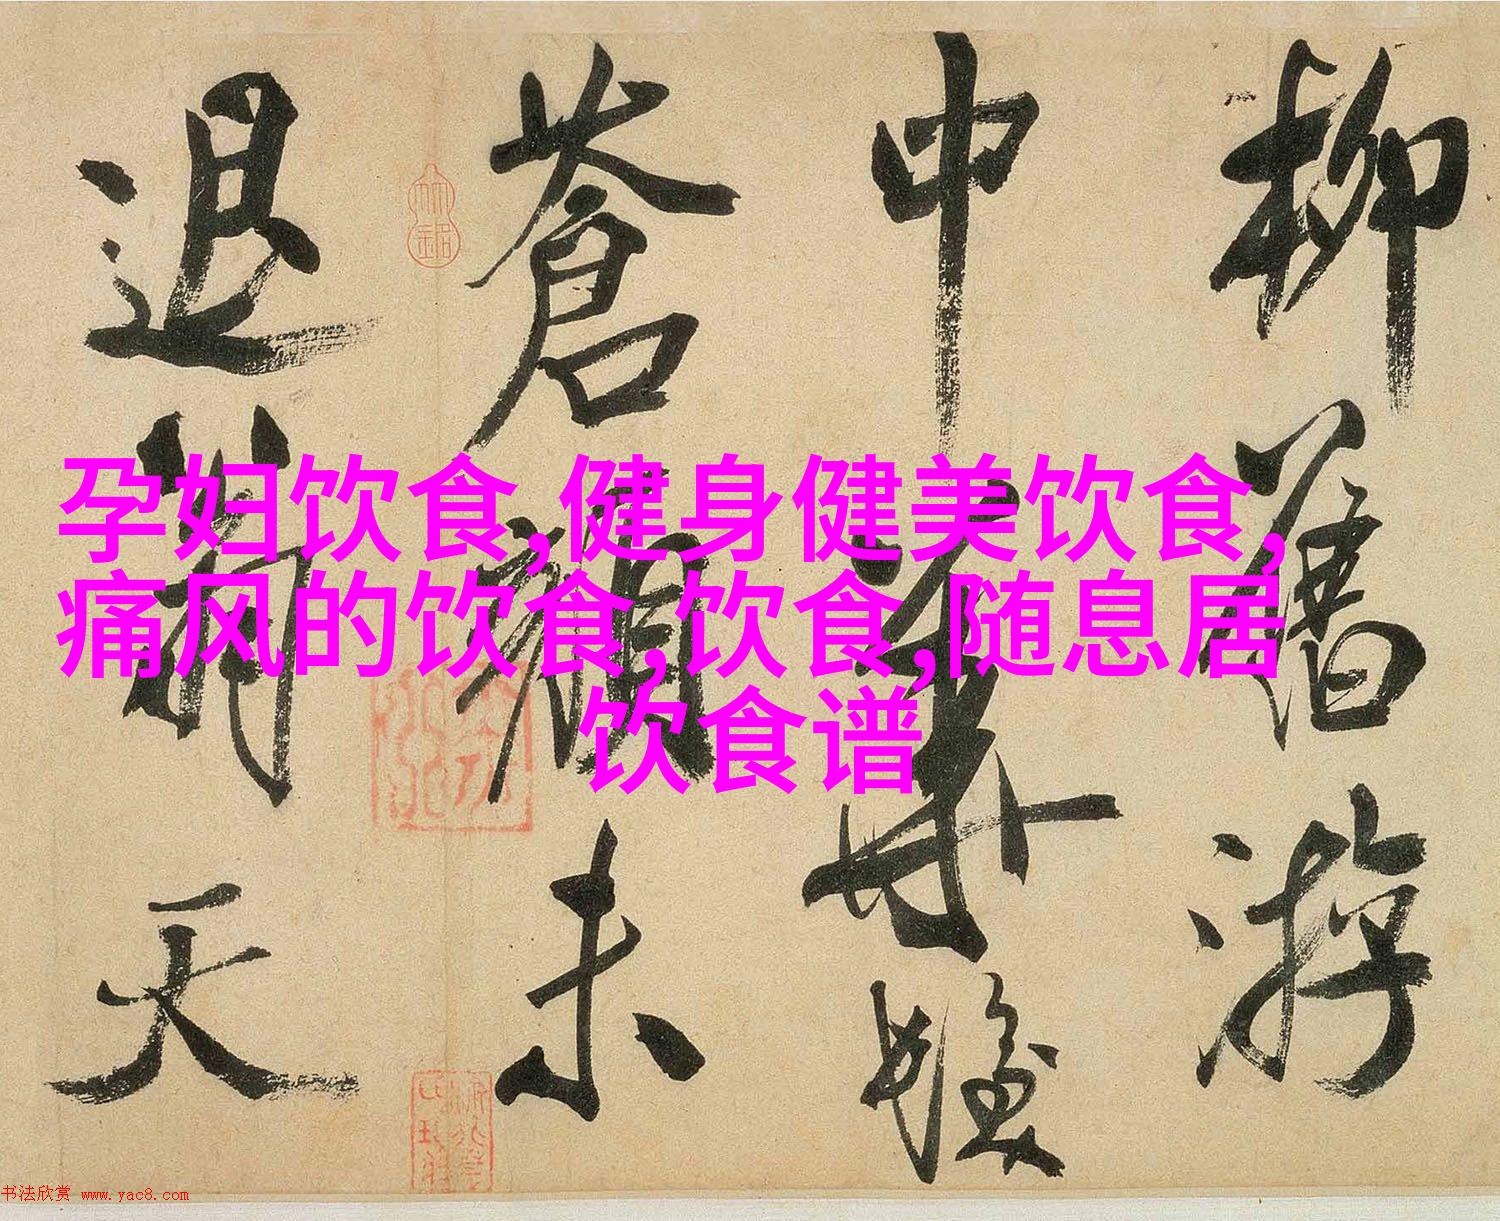 孕妇饮食,健身健美饮食,
痛风的饮食,饮食,随息居
饮食谱
柳舊游
中華
蒼顏未
退天
书法欣赏 www.yac8.com